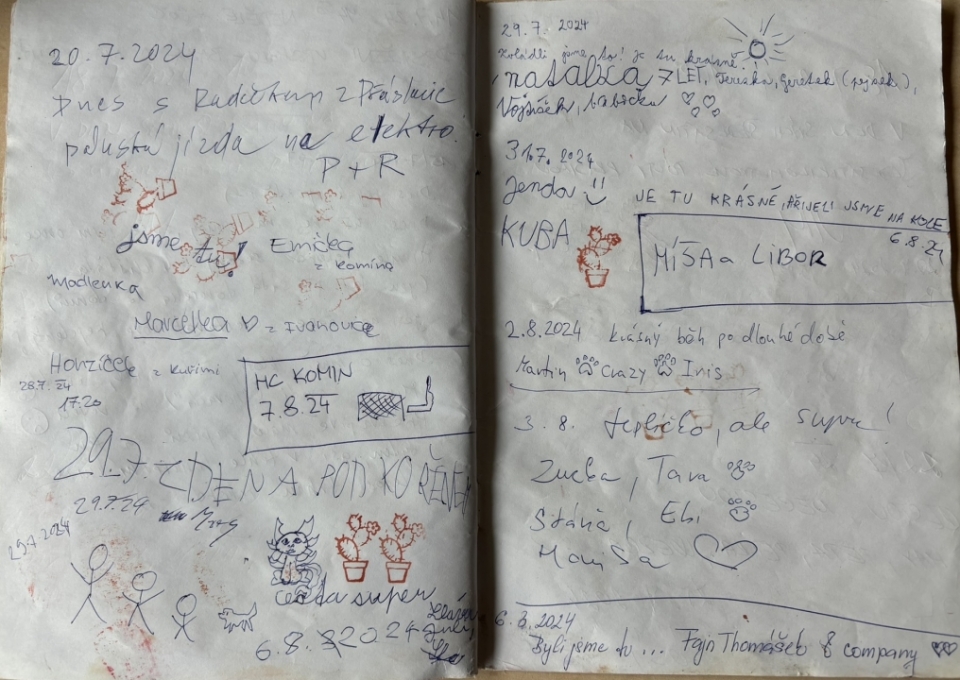 20.7.2024
Dnes s
jízda na elektro.
P + R
jsme tu!
Emička
z Komína
Madlenka
Marcelka z Ivanovic
Honzíček z Kuřimi
28.7. 24
17.20
HC KOMIN
7.8.24
29.7. ZDENA POD KOŘENEM
29.7.24
29.7.2024
cesta super
6.8.2024
29.7. 2024
Zvládli jsme to! je tu krásně!
natálka 7 LET, Tereska, (pejsek),
Vojtíšek, babička
31.7. 2024
Jenda
KUBA
JE TU KRÁSNĚ, PŘIJELI JSME NA KOLE
6.8.24
MÍŠA a LIBOR
2.8.2024 krásný běh po dlouhé době
Martin Crazy Iris
3. 8. tepličko, ale super!
Tara
Stáňa, Ebi
Moniša
6.3.2024
Byli jsme tu ... Fajn Thomášek & company